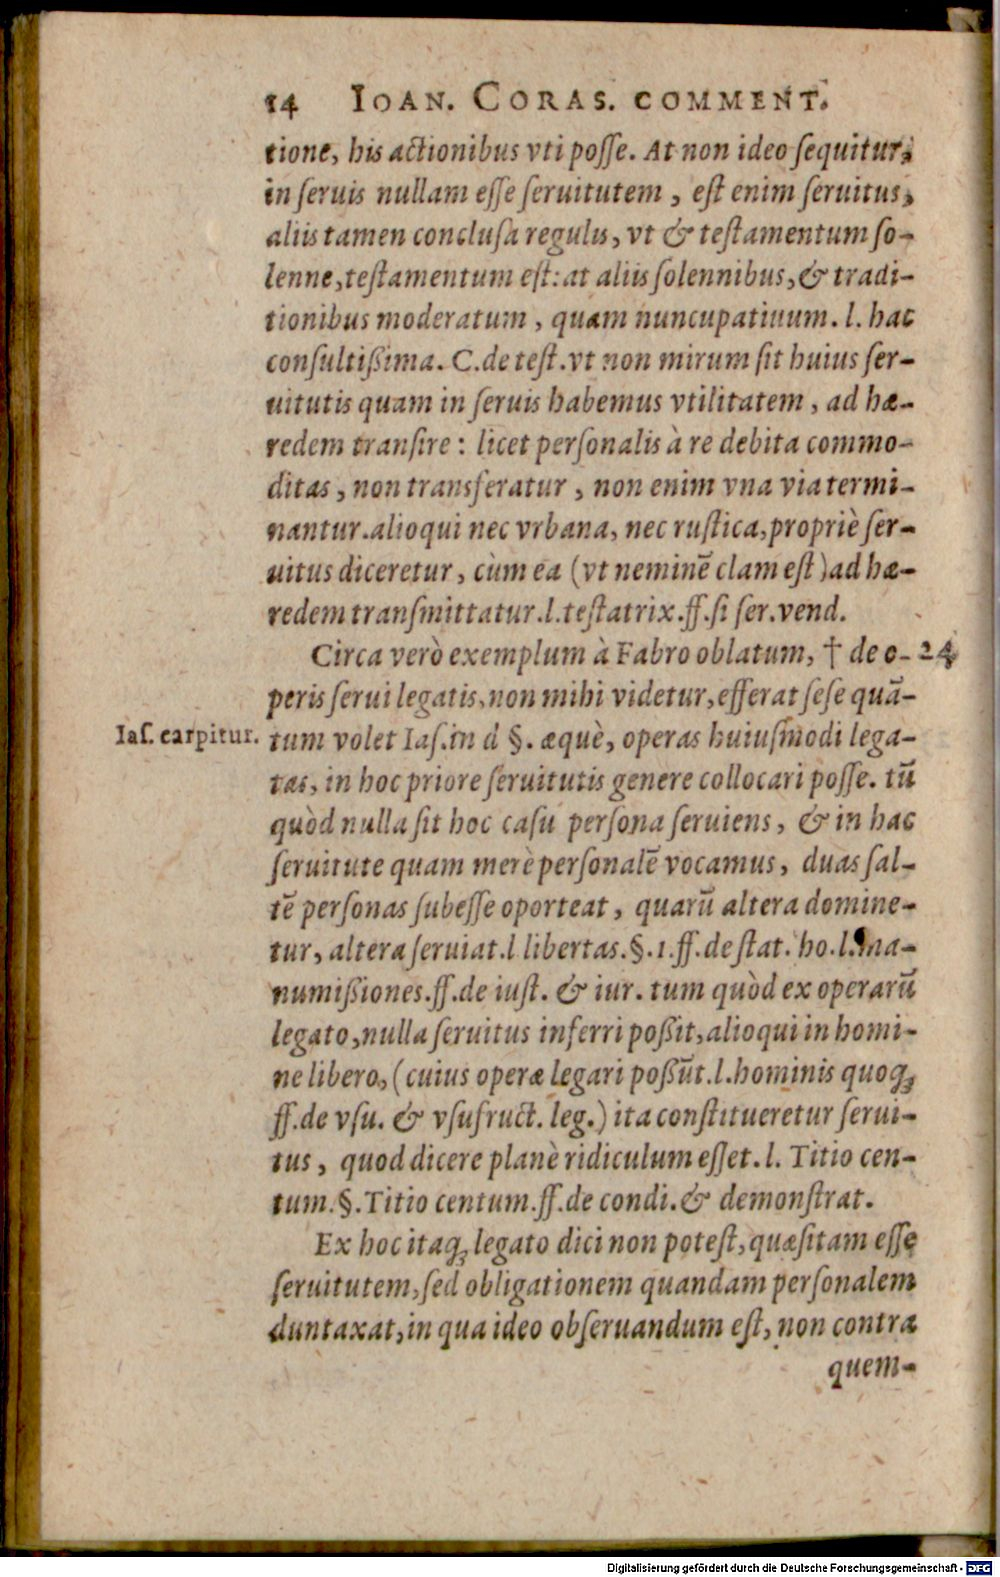 14 IOAN. CORAS. COMMENT.
tione, his actionibus vti posse. At non ideo sequitur,
in seruis nullam esse seruitutem, est enim seruitus,
aliis tamen conclusa regulis, vt & testamentum so-
lenne, testamentum est: at aliis solennibus, & tradi-
tionibus moderatum, quam nuncupatiuum. l. hac
consultißima. C. de test. vt non mirum sit huius ser-
uitutis quam in seruis habemus vtilitatem, ad hæ-
redem transire: licet personalis à re debita commo-
ditas, non transferatur, non enim vna via termi-
nantur. alioqui nec vrbana, nec rustica, propriè ser-
uitus diceretur, cùm ea (vt neminē clam est) ad hæ-
redem transmittatur. l. testatrix. ff. si ser. vend.
Circa verò exemplum à Fabro oblatum, † de o- 24
peris serui legatis, non mihi videtur, efferat sese quā-
Ias. carpitur. tum volet Ias. in d §. æquè, operas huiusmodi lega-
tas, in hoc priore seruitutis genere collocari posse. tū
quòd nulla sit hoc casu persona seruiens, & in hac
seruitute quam merè personalē vocamus, duas sal-
tē personas subesse oporteat, quarū altera domine-
tur, altera seruiat. l libertas. §. 1. ff. de stat. ho. l. ma-
numißiones. ff. de iust. & iur. tum quòd ex operarū
legato, nulla seruitus inferri poßit, alioqui in homi-
ne libero, (cuius operæ legari poßūt. l. hominis quoq;
ff. de vsu. & vsufruct. leg.) ita constitueretur serui-
tus, quod dicere planè ridiculum esset. l. Titio cen-
tum. §. Titio centum. ff. de condi. & demonstrat.
Ex hoc itaq; legato dici non potest, quæsitam esse
seruitutem, sed obligationem quandam personalem
duntaxat, in qua ideo obseruandum est, non contra
quem-
Digitalisierung gefördert durch die Deutsche Forschungsgemeinschaft - DFG